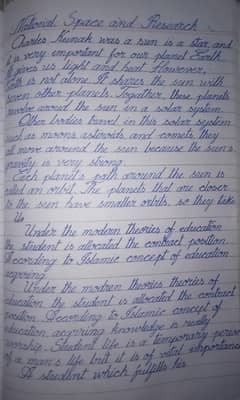 National Space and Research
Charles Keunah was a sun is a star and
it is very important for our planet Earth
It gives us light and heat. However,
Earth is not alone. It shares the sun with
seven other planets. Together, these planets
revolve around the sun in a solar system.
Other bodies travel in this solar system
such as moons, asteroids, and comets they
all move around the sun because the sun's
gravity is very strong.
Each planet's path around the sun is
called an orbit. The planets that are closer
to the sun have smaller orbits, so they take
Us
Under the modern theories of education
the student is allocated the contract position.
According to Islamic concept of education
acquiring
Under the modren theories theories of
education, the student is allocated the contract
position. According to Islamic concept of
education, acquiring knowledge is really
worship. Student life is a temporary period
of a man's life but it is of vital importance
A student which fulfills his